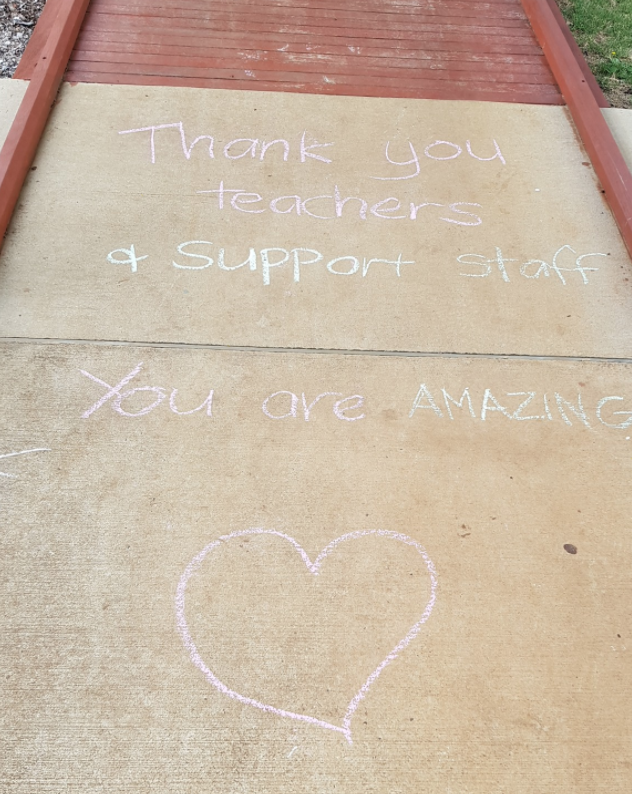 Thank you
teachers
& Support staff
You are AMAZING